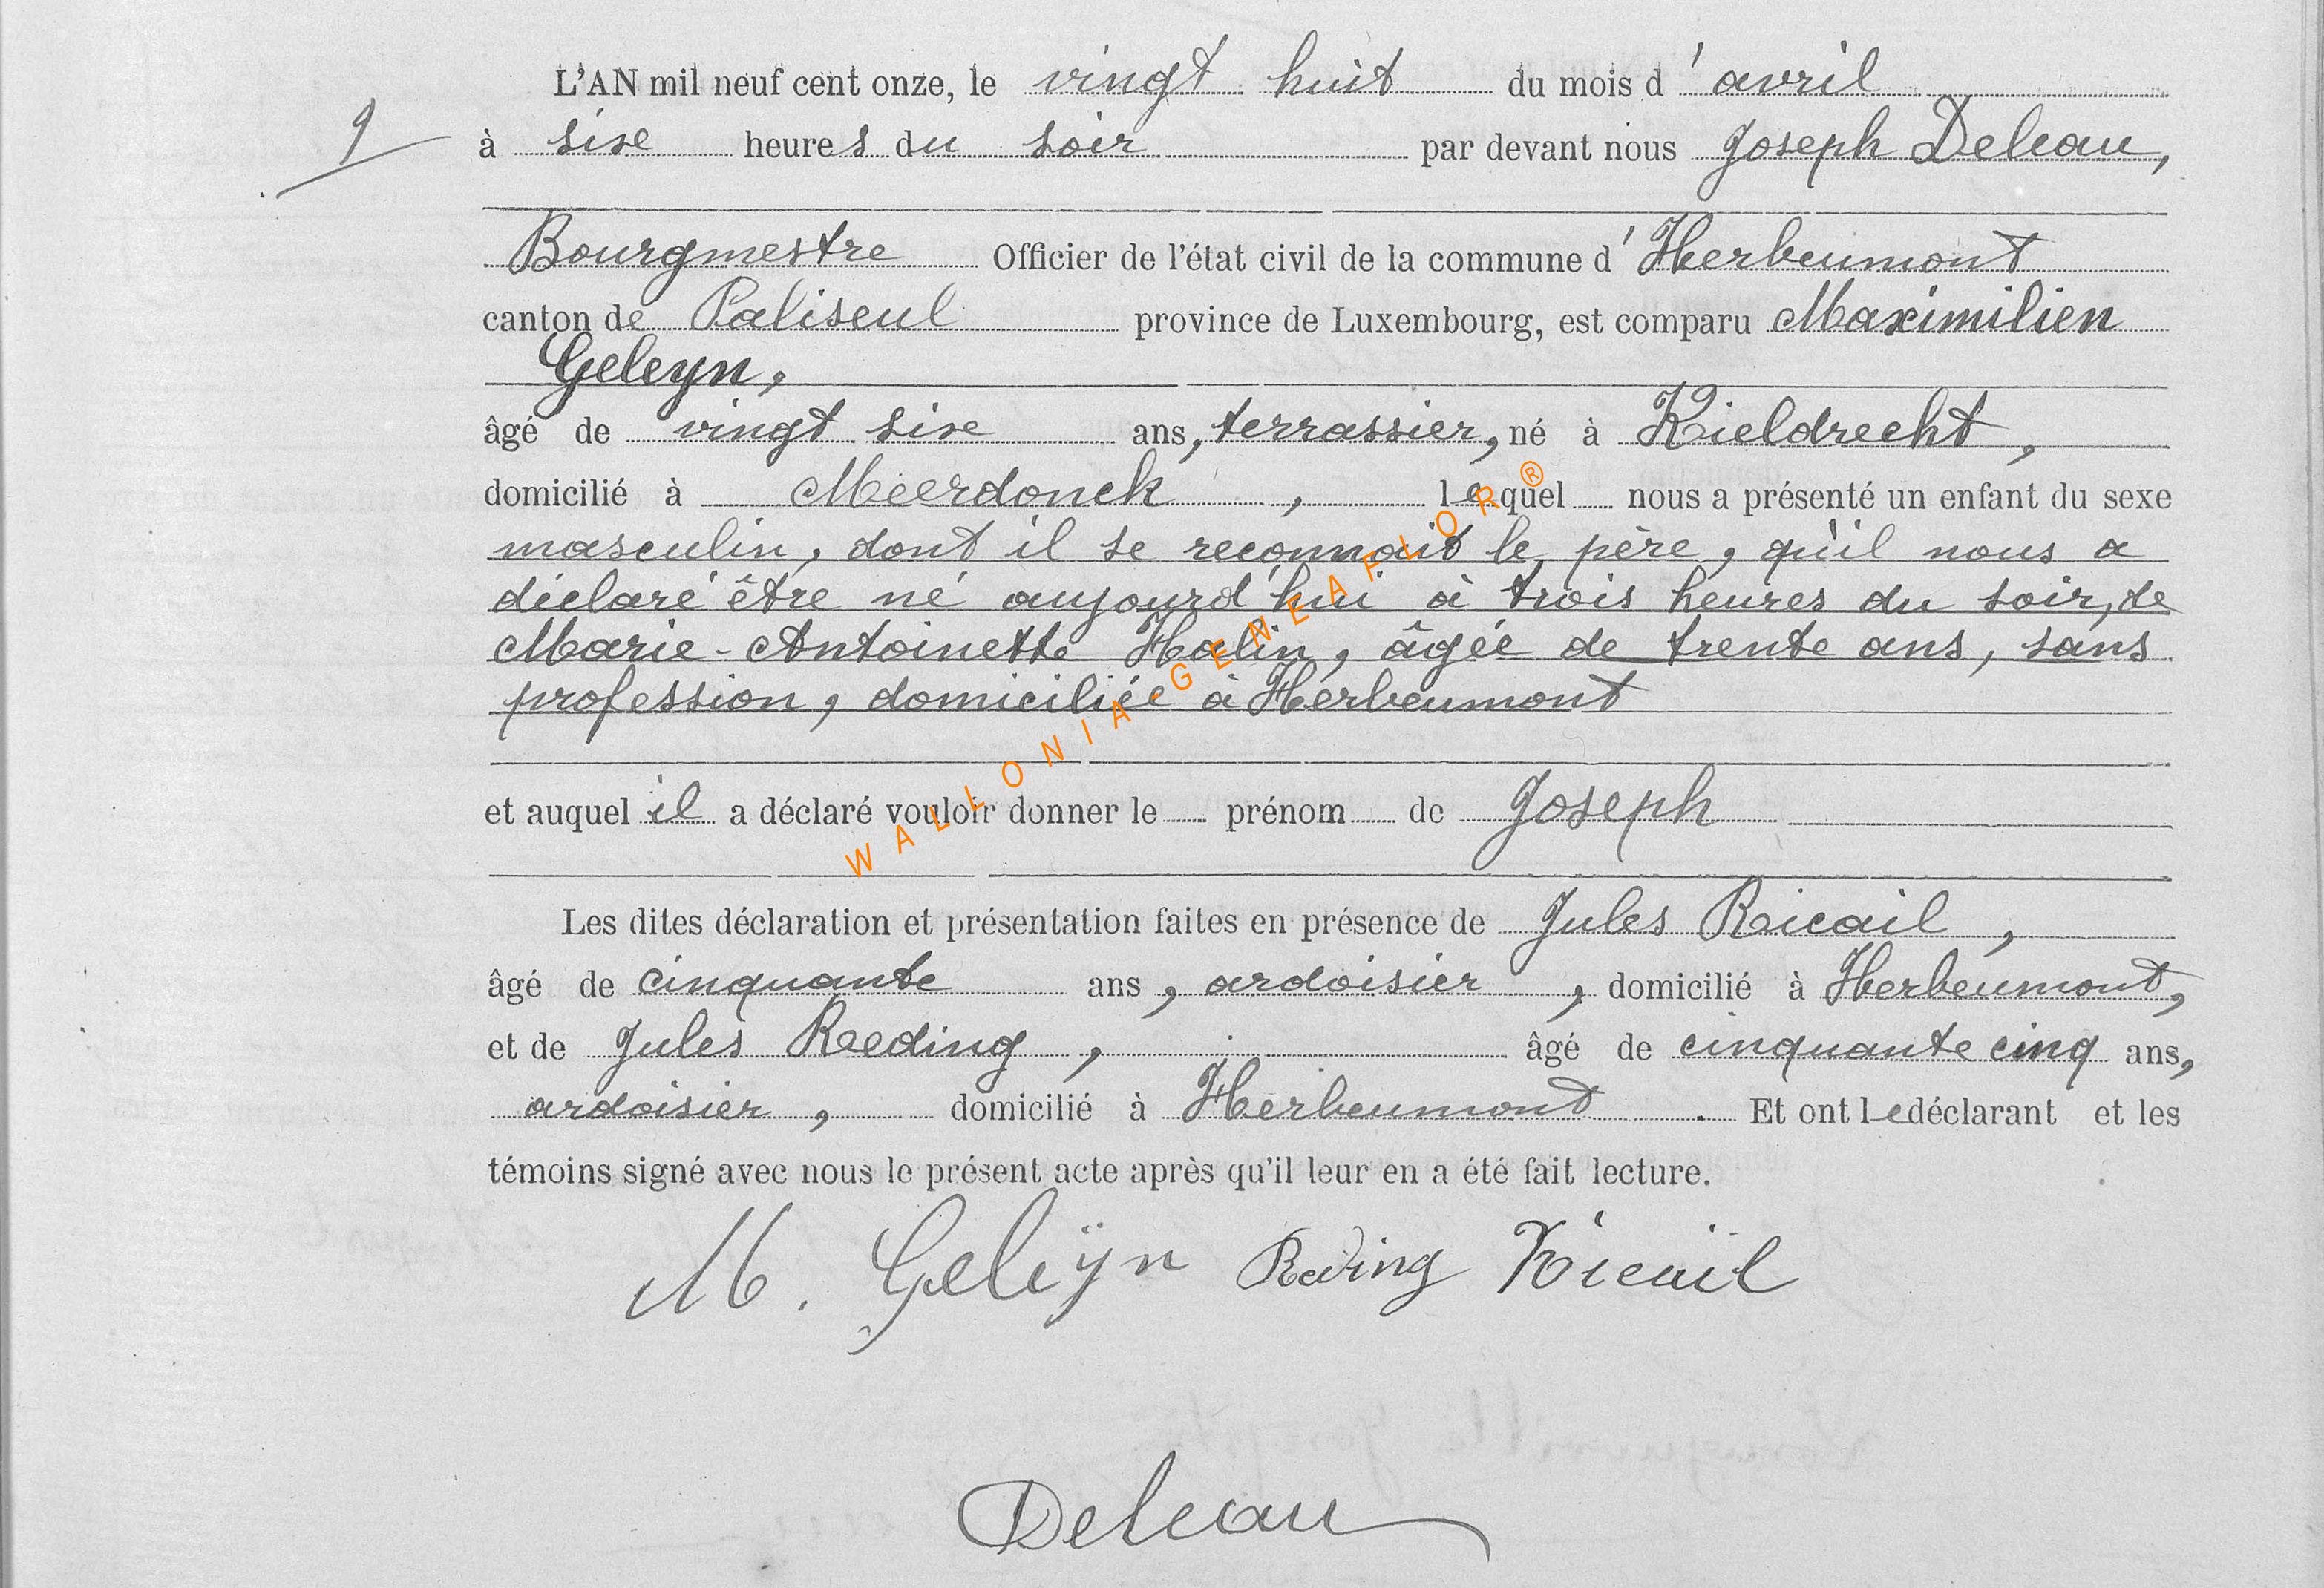 L'AN mil neuf cent onze, le vingt huit du mois d'avril
9 à six heures du soir par devant nous Joseph Deleau,
Bourgmestre Officier de l'état civil de la commune d'Herbeumont
canton de Paliseul province de Luxembourg, est comparu Maximilien
Geleyn,
âgé de vingt six ans, terrassier, né à Kieldrecht,
domicilié à Meerdonck, lequel nous a présenté un enfant du sexe
masculin, dont il se reconnait le père, qu'il nous a
déclaré être né aujourd'hui à trois heures du soir, de
Marie-Antoinette Halin, âgée de trente ans, sans
profession, domiciliée à Herbeumont
et auquel il a déclaré vouloir donner le prénom de Joseph
Les dites déclaration et présentation faites en présence de Jules Ricail,
âgé de cinquante ans, ardoisier, domicilié à Herbeumont,
et de Jules Reding, âgé de cinquante cinq ans,
ardoisier, domicilié à Herbeumont. Et ont le déclarant et les
témoins signé avec nous le présent acte après qu'il leur en a été fait lecture.
M. Geleÿn Reding Ricail
Deleau
WALLONIA-GENEAFLOR®